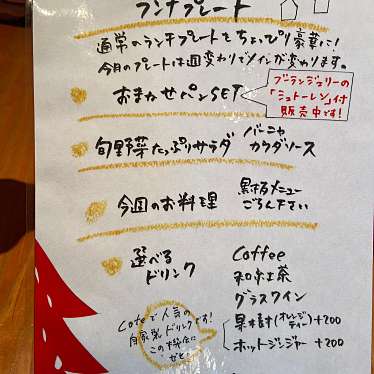 ランチプレート
通常のランチプレートをちょっぴり豪華に!
今月のプレートは週変わりでメインが変わります。
おまかせパンSET
ブーランジェリーの
「ミュトーレン」付
販売中です!
旬野菜たっぷりサラダ
バーニャ
カウダソース
今週のお料理
黒板メニュー
ごらん下さい
選べる
ドリンク
Coffee
和紅茶
グラスワイン
果樹討(オレンジティー)+200
ホットジンジャー+200
Cafeで人気の
自家製ドリンクです!
この機会に
ぜひ